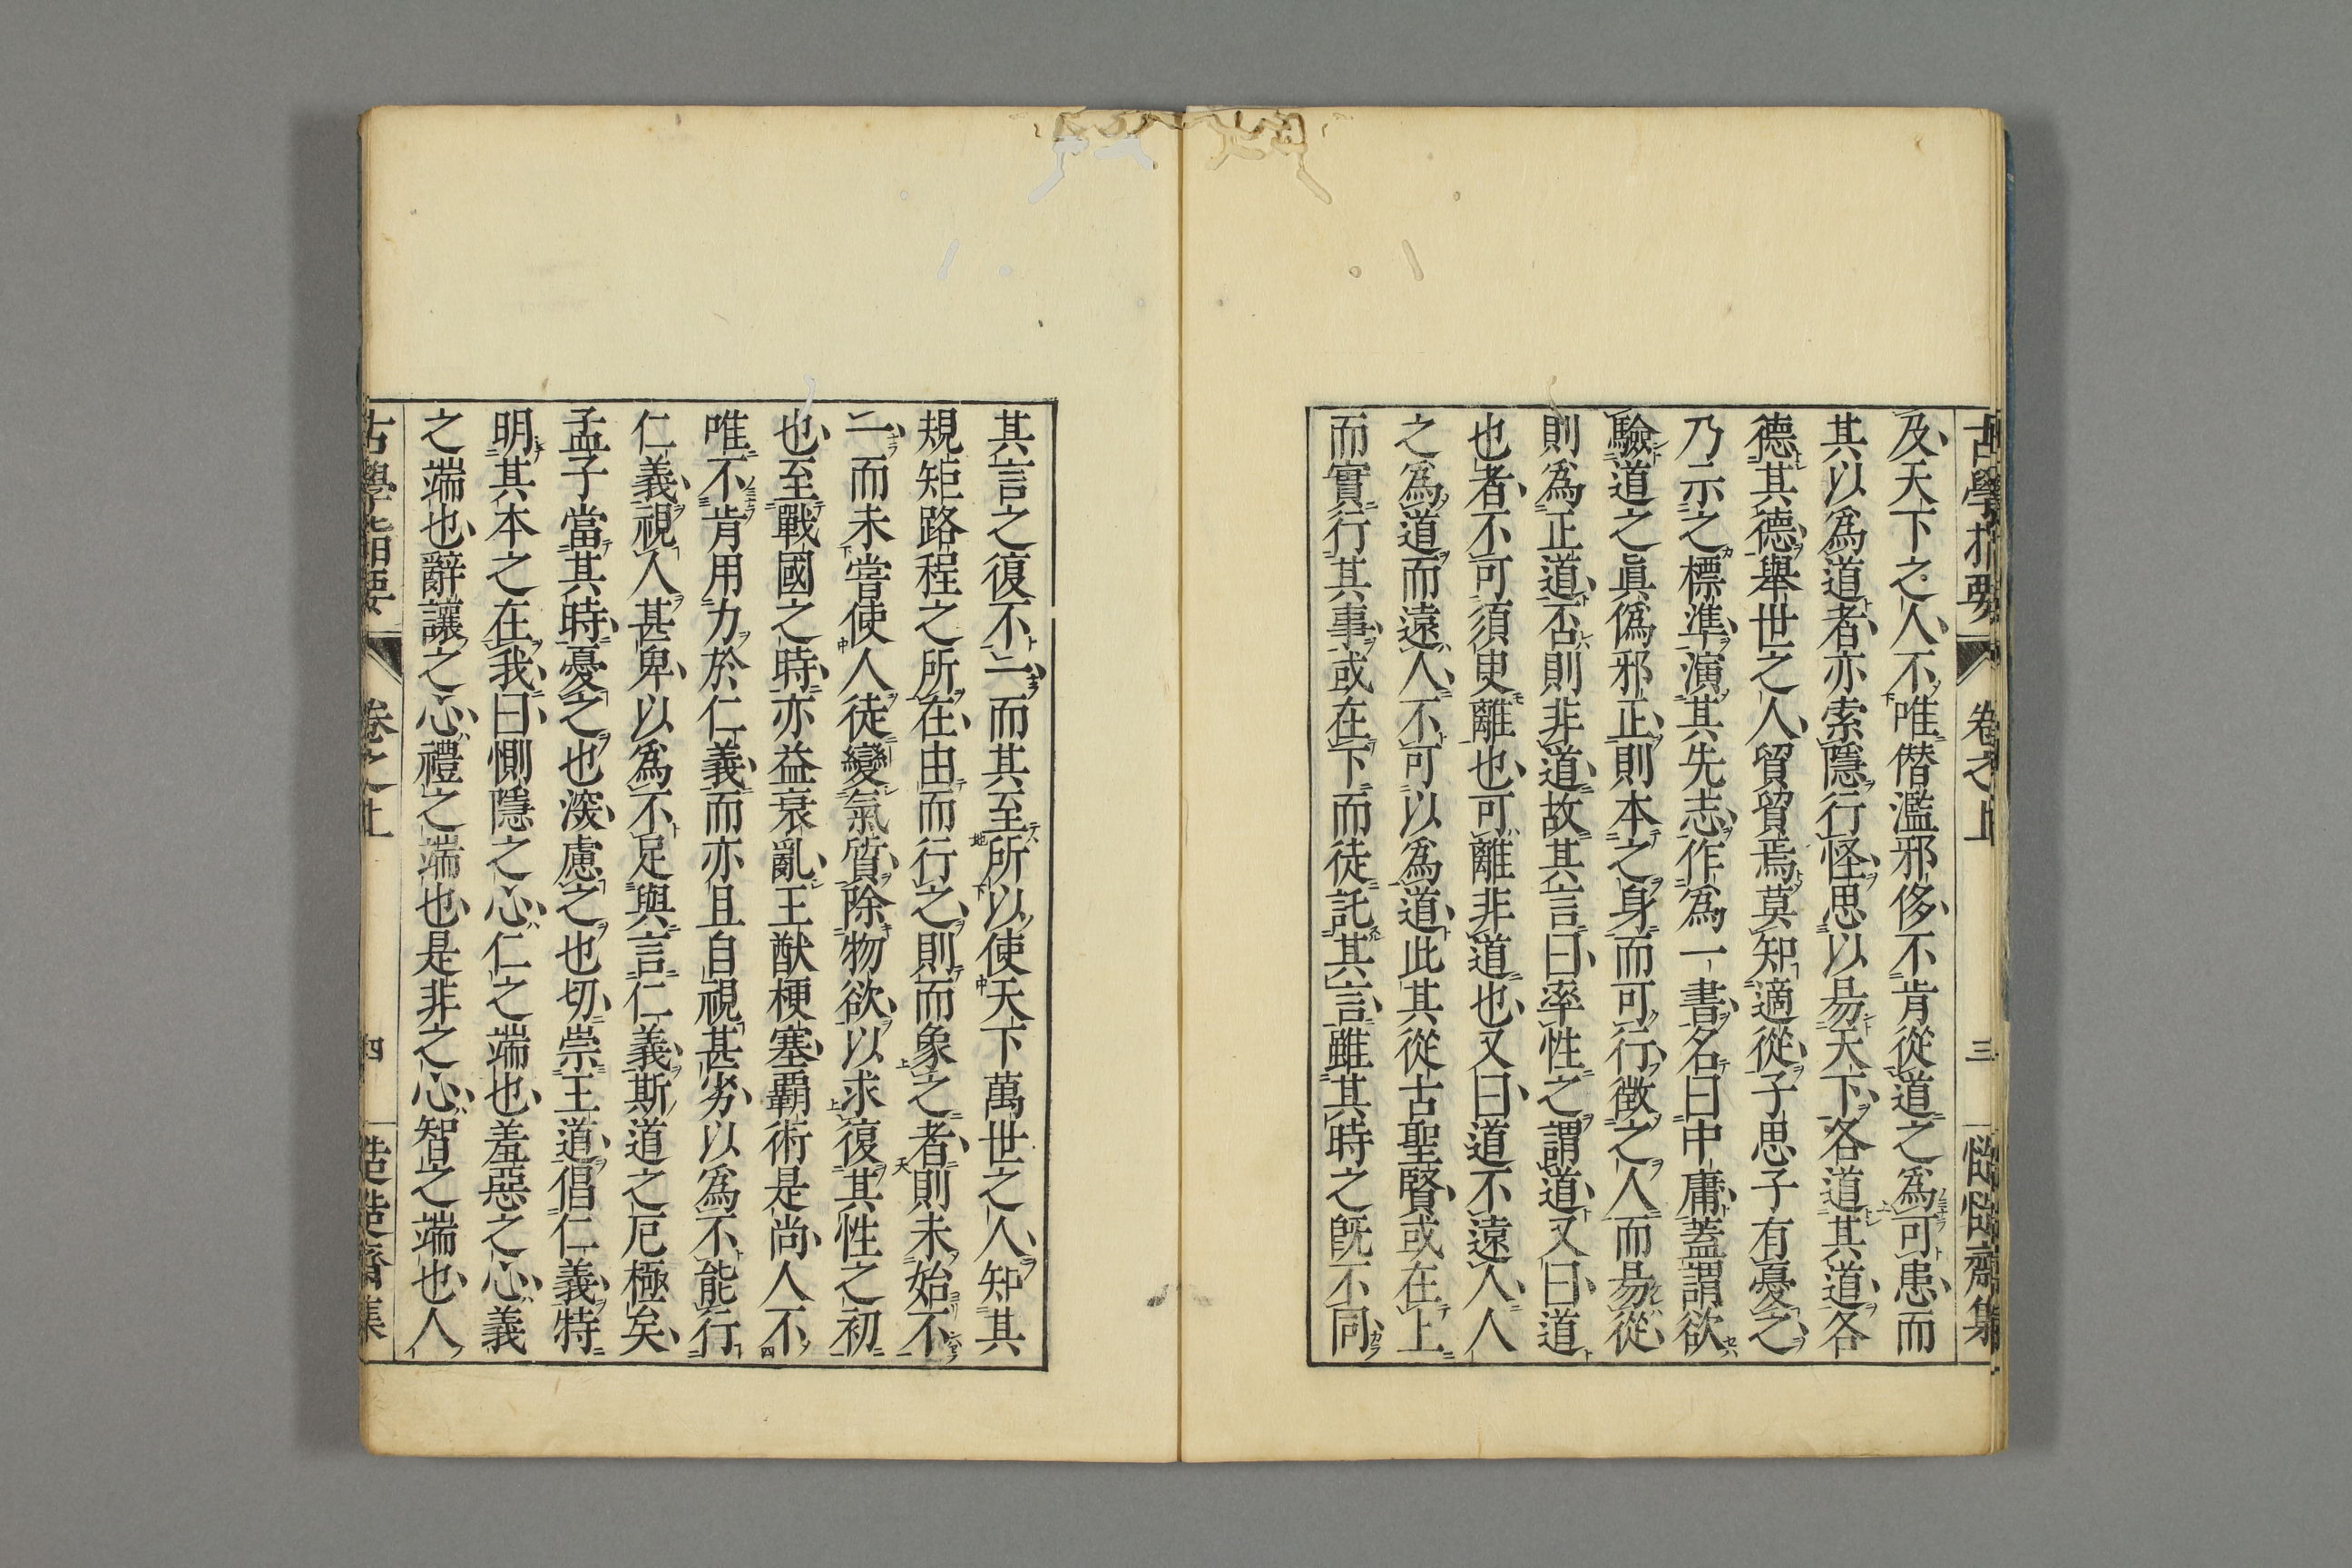 古學指要 卷之上 三 慥慥齋集
及天下之人不唯僭濫邪侈不肯從道之爲可患而
其以爲道者亦索隱行怪思以易天下各道其道各
德其德舉世之人貿貿焉莫知適從子思子有憂之
乃示之標準演其先志作爲一書名曰中庸蓋謂欲
驗道之眞僞邪正則本之身而可行徵之人而易從
則爲正道否則非道故其言曰率性之謂道又曰道
也者不可須臾離也可離非道也又曰道不遠人人
之爲道而遠人不可以爲道此其從古聖賢或在上
而實行其事或在下而徒託其言雖其時之既不同
其言之復不一而其至所以使天下萬世之人知其
規矩路程之所在由而行之則而象之者則未始不
一而未嘗使人徒變氣質除物欲以求復其性之初
也至戰國之時亦益衰亂王猷梗塞覇術是尚人不
唯不肯用力於仁義而亦且自視甚劣以爲不能行
仁義視人甚卑以爲不足與言仁義斯道之厄極矣
孟子當其時憂之也深慮之也切崇王道倡仁義特
明其本之在我曰惻隱之心仁之端也羞惡之心義
之端也辭讓之心禮之端也是非之心智之端也人
古學指要 卷之上 四 慥慥齋集